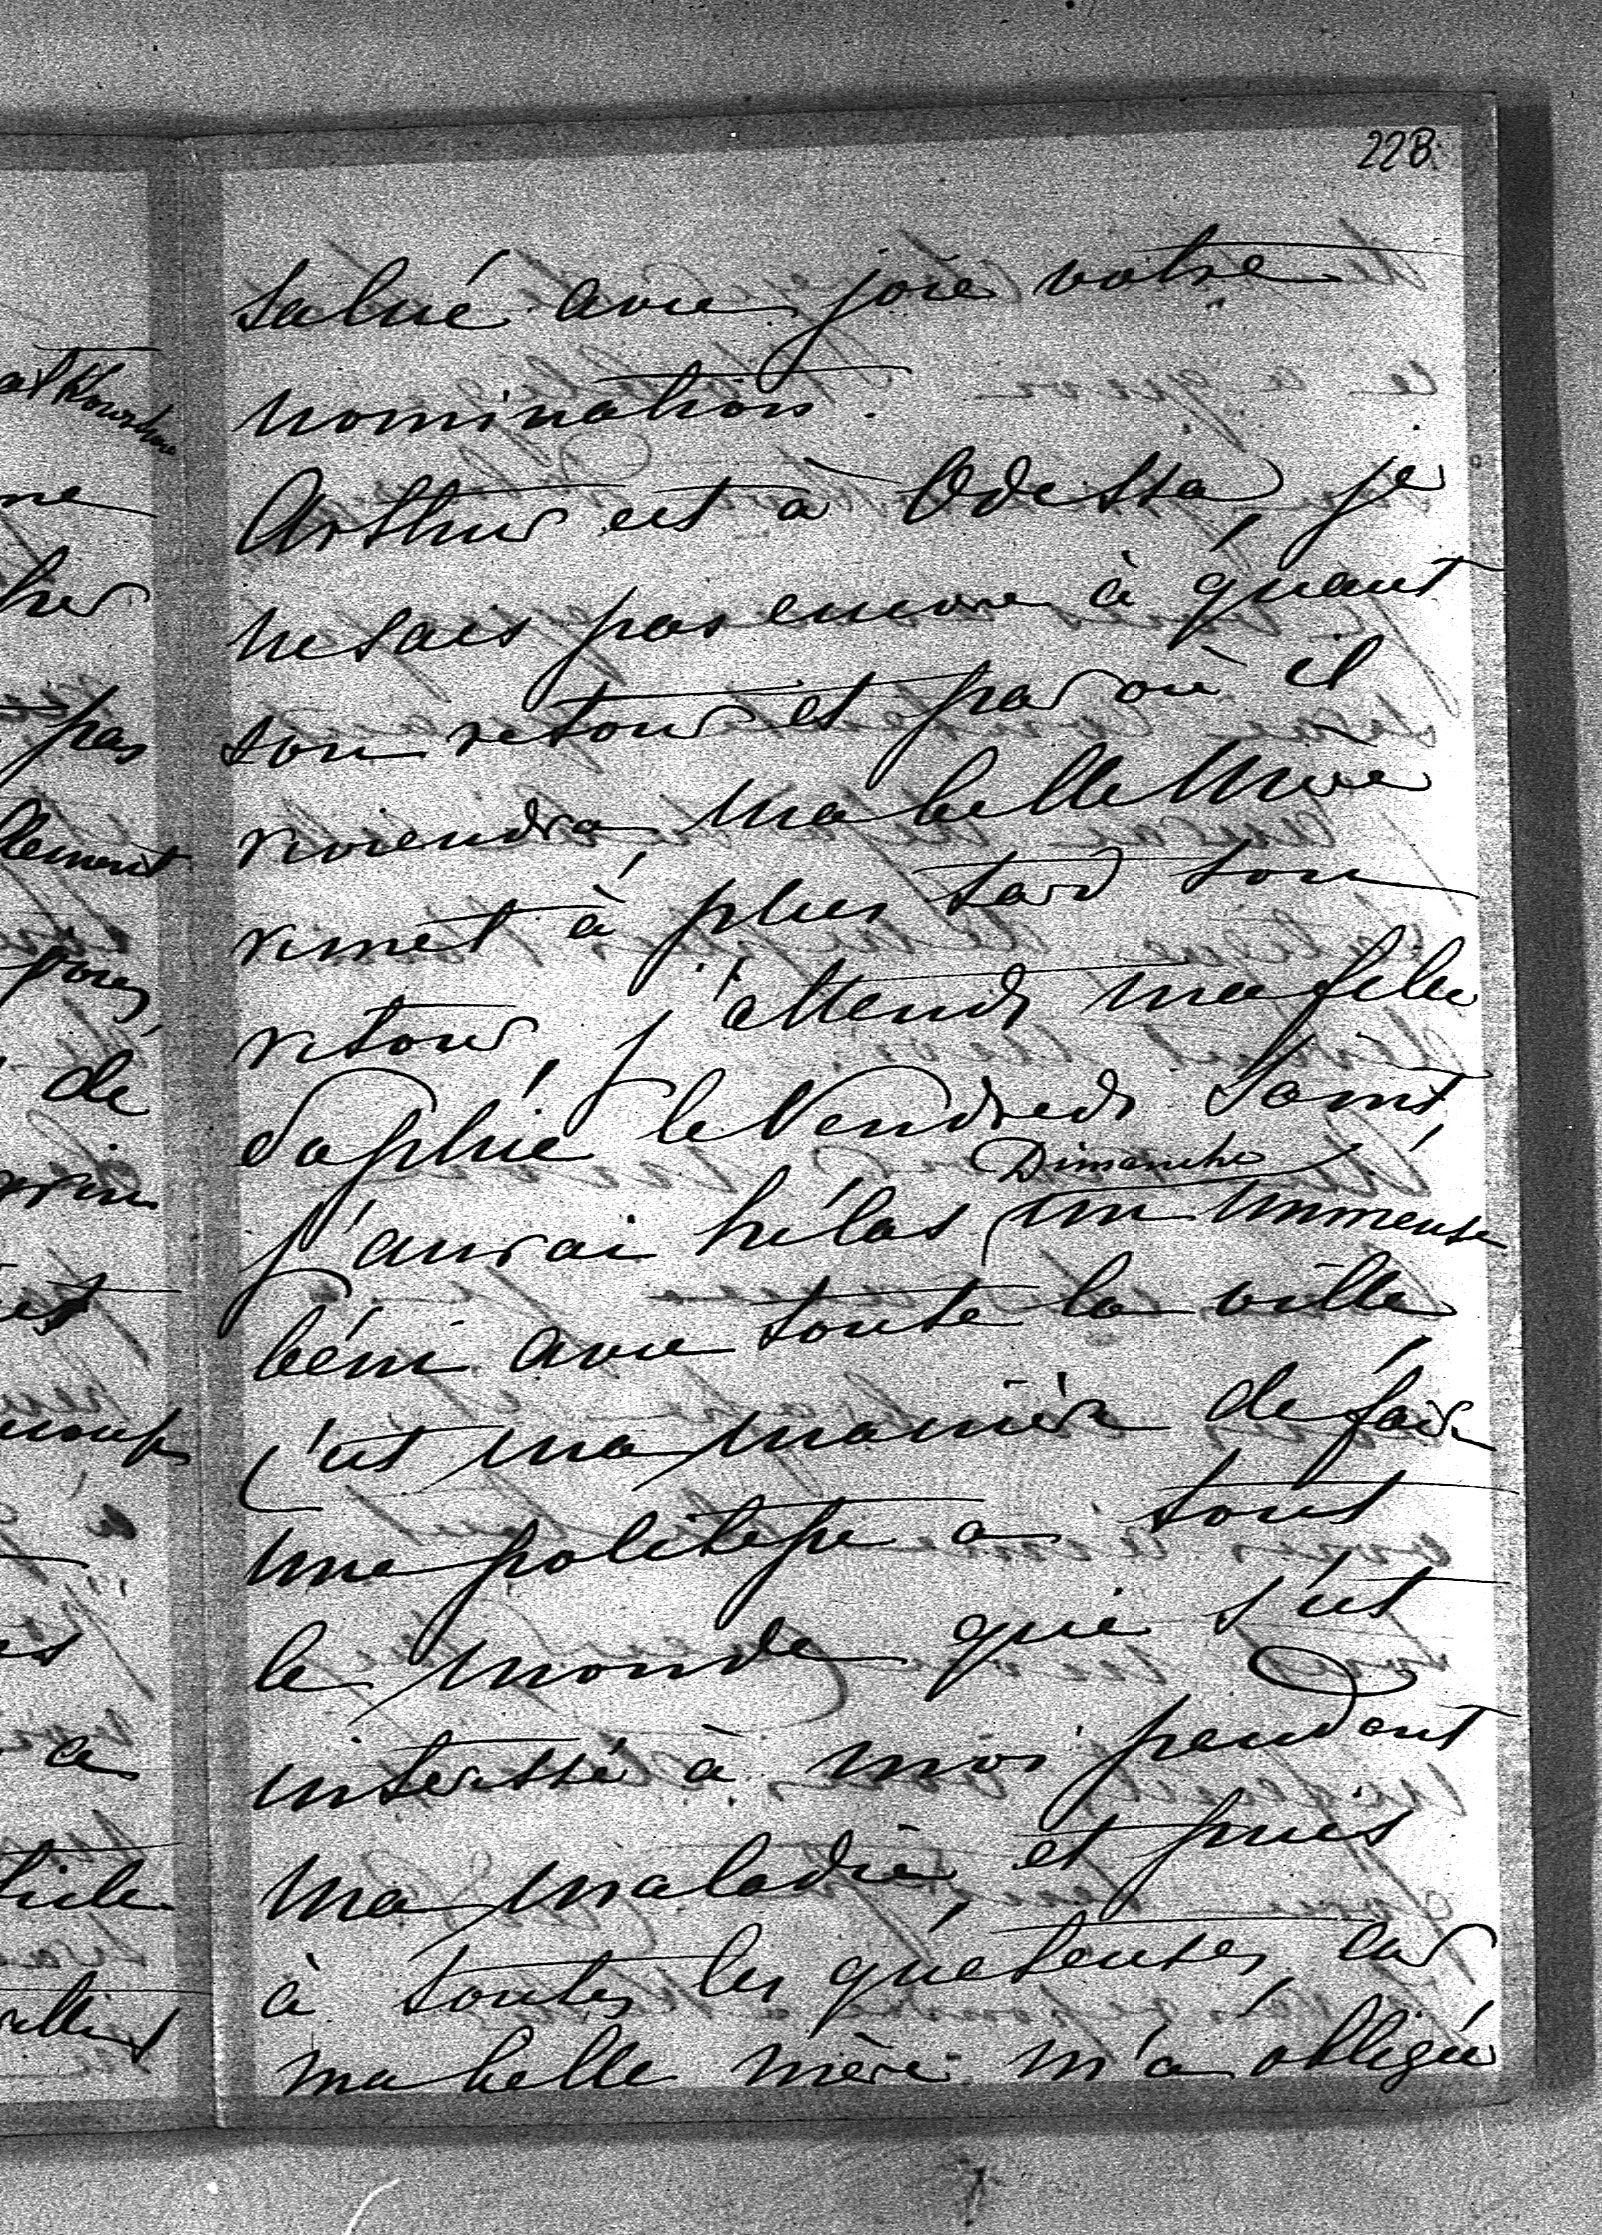 228.
salué avec joie votre
nomination.
Arthur est à Odessa, je
ne sais pas encore à quant
son retour et par où il
reviendra, ma belle Mère
remet à plus tard son
retour, j'attends ma fille
Sophie le Vendredi Saint,
Dimanche
j'aurai hélas un immense
béni avec toute la ville,
c'est ma manière de faire
une politesse a tout
le monde qui s'est
interessé à moi pendant
ma maladie, et puis
à toutes les quêteuses, car
ma belle mère m'a obligée
pas
de